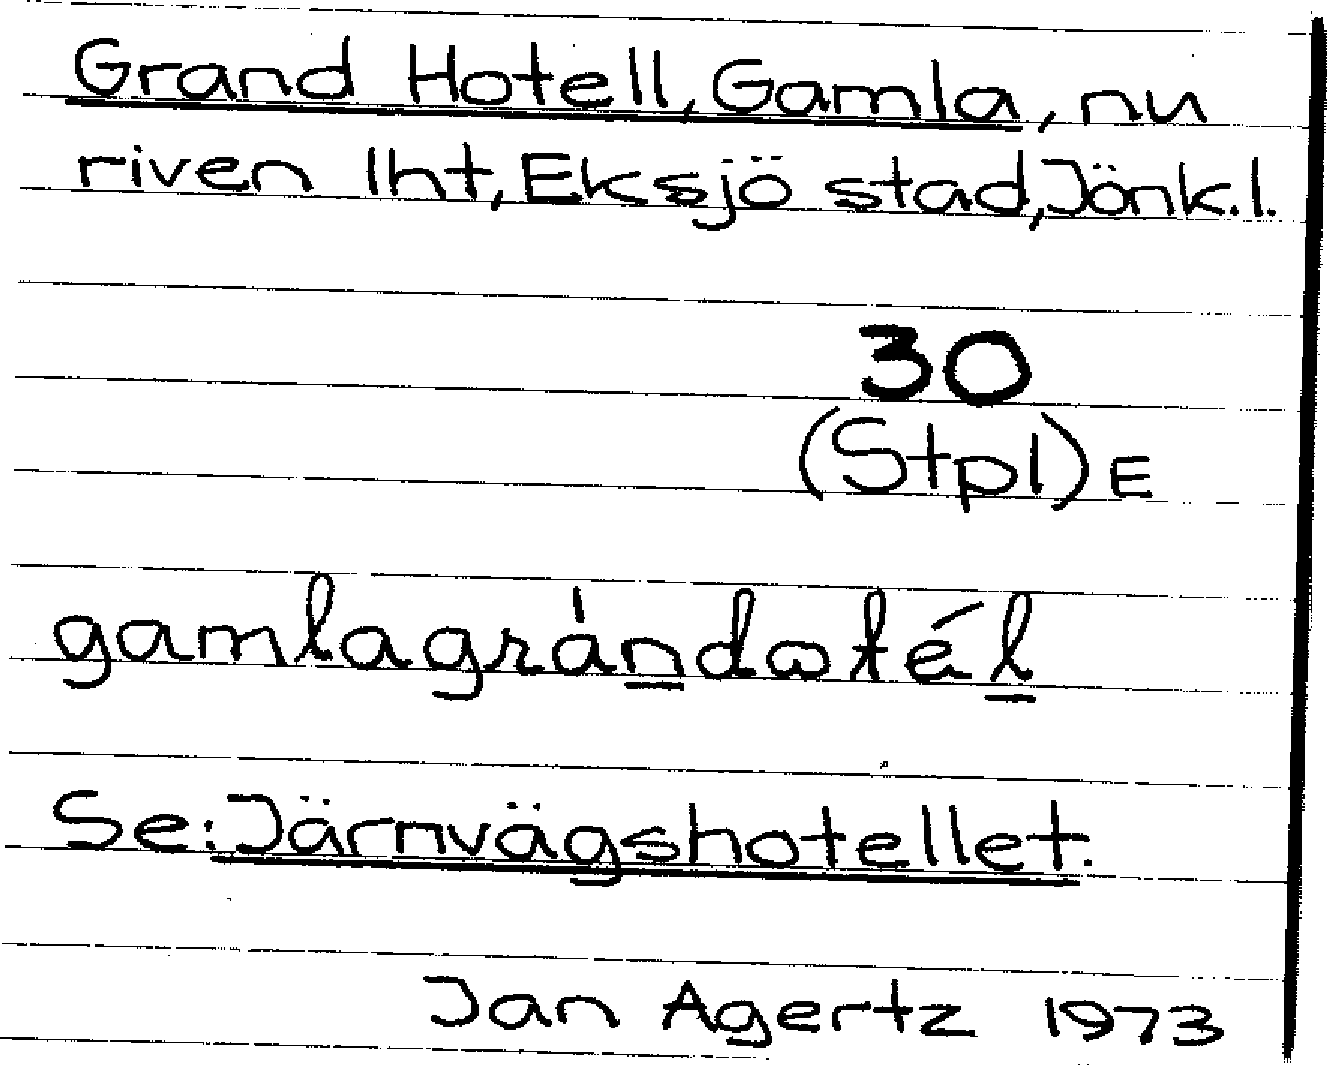 Grand Hotell, Gamla, nu
riven lht, Eksjö stad, Jönk.l.
30
(Stpl) E
gamlagrándωtél
Se: Järnvägshotellet.
Jan Agertz 1973